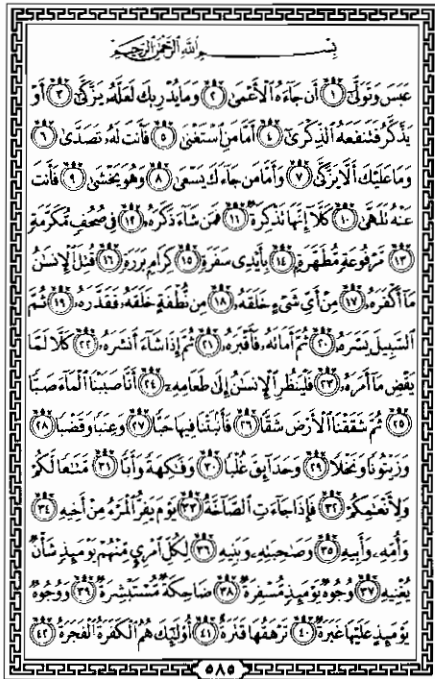 بِسْمِ اللَّهِ الرَّحْمَٰنِ الرَّحِيمِ
عَبَسَ وَتَوَلَّىٰٓ ١ أَن جَآءَهُ ٱلْأَعْمَىٰ ٢ وَمَا يُدْرِيكَ لَعَلَّهُۥ يَزَّكَّىٰٓ ٣ أَوْ
يَذَّكَّرُ فَتَنفَعَهُ ٱلذِّكْرَىٰٓ ٤ أَمَّا مَنِ ٱسْتَغْنَىٰ ٥ فَأَنتَ لَهُۥ تَصَدَّىٰ ٦
وَمَا عَلَيْكَ أَلَّا يَزَّكَّىٰ ٧ وَأَمَّا مَن جَآءَكَ يَسْعَىٰ ٨ وَهُوَ يَخْشَىٰ ٩ فَأَنتَ
عَنْهُ تَلَهَّىٰ ١٠ كَلَّآ إِنَّهَا تَذْكِرَةٌ ١١ فَمَن شَآءَ ذَكَرَهُۥ ١٢ فِى صُحُفٍ مُّكَرَّمَةٍ
١٣ مَّرْفُوعَةٍ مُّطَهَّرَةٍۭ ١٤ بِأَيْدِى سَفَرَةٍ ١٥ كِرَامٍۭ بَرَرَةٍ ١٦ قُتِلَ ٱلْإِنسَٰنُ
مَآ أَكْفَرَهُۥ ١٧ مِنْ أَىِّ شَىْءٍ خَلَقَهُۥ ١٨ مِن نُّطْفَةٍ خَلَقَهُۥ فَقَدَّرَهُۥ ١٩ ثُمَّ
ٱلسَّبِيلَ يَسَّرَهُۥ ٢٠ ثُمَّ أَمَاتَهُۥ فَأَقْبَرَهُۥ ٢١ ثُمَّ إِذَا شَآءَ أَنشَرَهُۥ ٢٢ كَلَّا لَمَّا
يَقْضِ مَآ أَمَرَهُۥ ٢٣ فَلْيَنظُرِ ٱلْإِنسَٰنُ إِلَىٰ طَعَامِهِۦٓ ٢٤ أَنَّا صَبَبْنَا ٱلْمَآءَ صَبًّا
٢٥ ثُمَّ شَقَقْنَا ٱلْأَرْضَ شَقًّا ٢٦ فَأَنۢبَتْنَا فِيهَا حَبًّا ٢٧ وَعِنَبًا وَقَضْبًا ٢٨
وَزَيْتُونًا وَنَخْلًا ٢٩ وَحَدَآئِقَ غُلْبًا ٣٠ وَفَٰكِهَةً وَأَبًّا ٣١ مَّتَٰعًا لَّكُمْ
وَلِأَنْعَٰمِكُمْ ٣٢ فَإِذَا جَآءَتِ ٱلصَّآخَّةُ ٣٣ يَوْمَ يَفِرُّ ٱلْمَرْءُ مِنْ أَخِيهِ ٣٤
وَأُمِّهِۦ وَأَبِيهِ ٣٥ وَصَٰحِبَتِهِۦ وَبَنِيهِ ٣٦ لِكُلِّ ٱمْرِئٍ مِّنْهُمْ يَوْمَئِذٍ شَأْنٌ
يُغْنِيهِ ٣٧ وُجُوهٌ يَوْمَئِذٍ مُّسْفِرَةٌ ٣٨ ضَاحِكَةٌ مُّسْتَبْشِرَةٌ ٣٩ وَوُجُوهٌ
يَوْمَئِذٍ عَلَيْهَا غَبَرَةٌ ٤٠ تَرْهَقُهَا قَتَرَةٌ ٤١ أُو۟لَٰٓئِكَ هُمُ ٱلْكَفَرَةُ ٱلْفَجَرَةُ ٤٢
٥٨٥